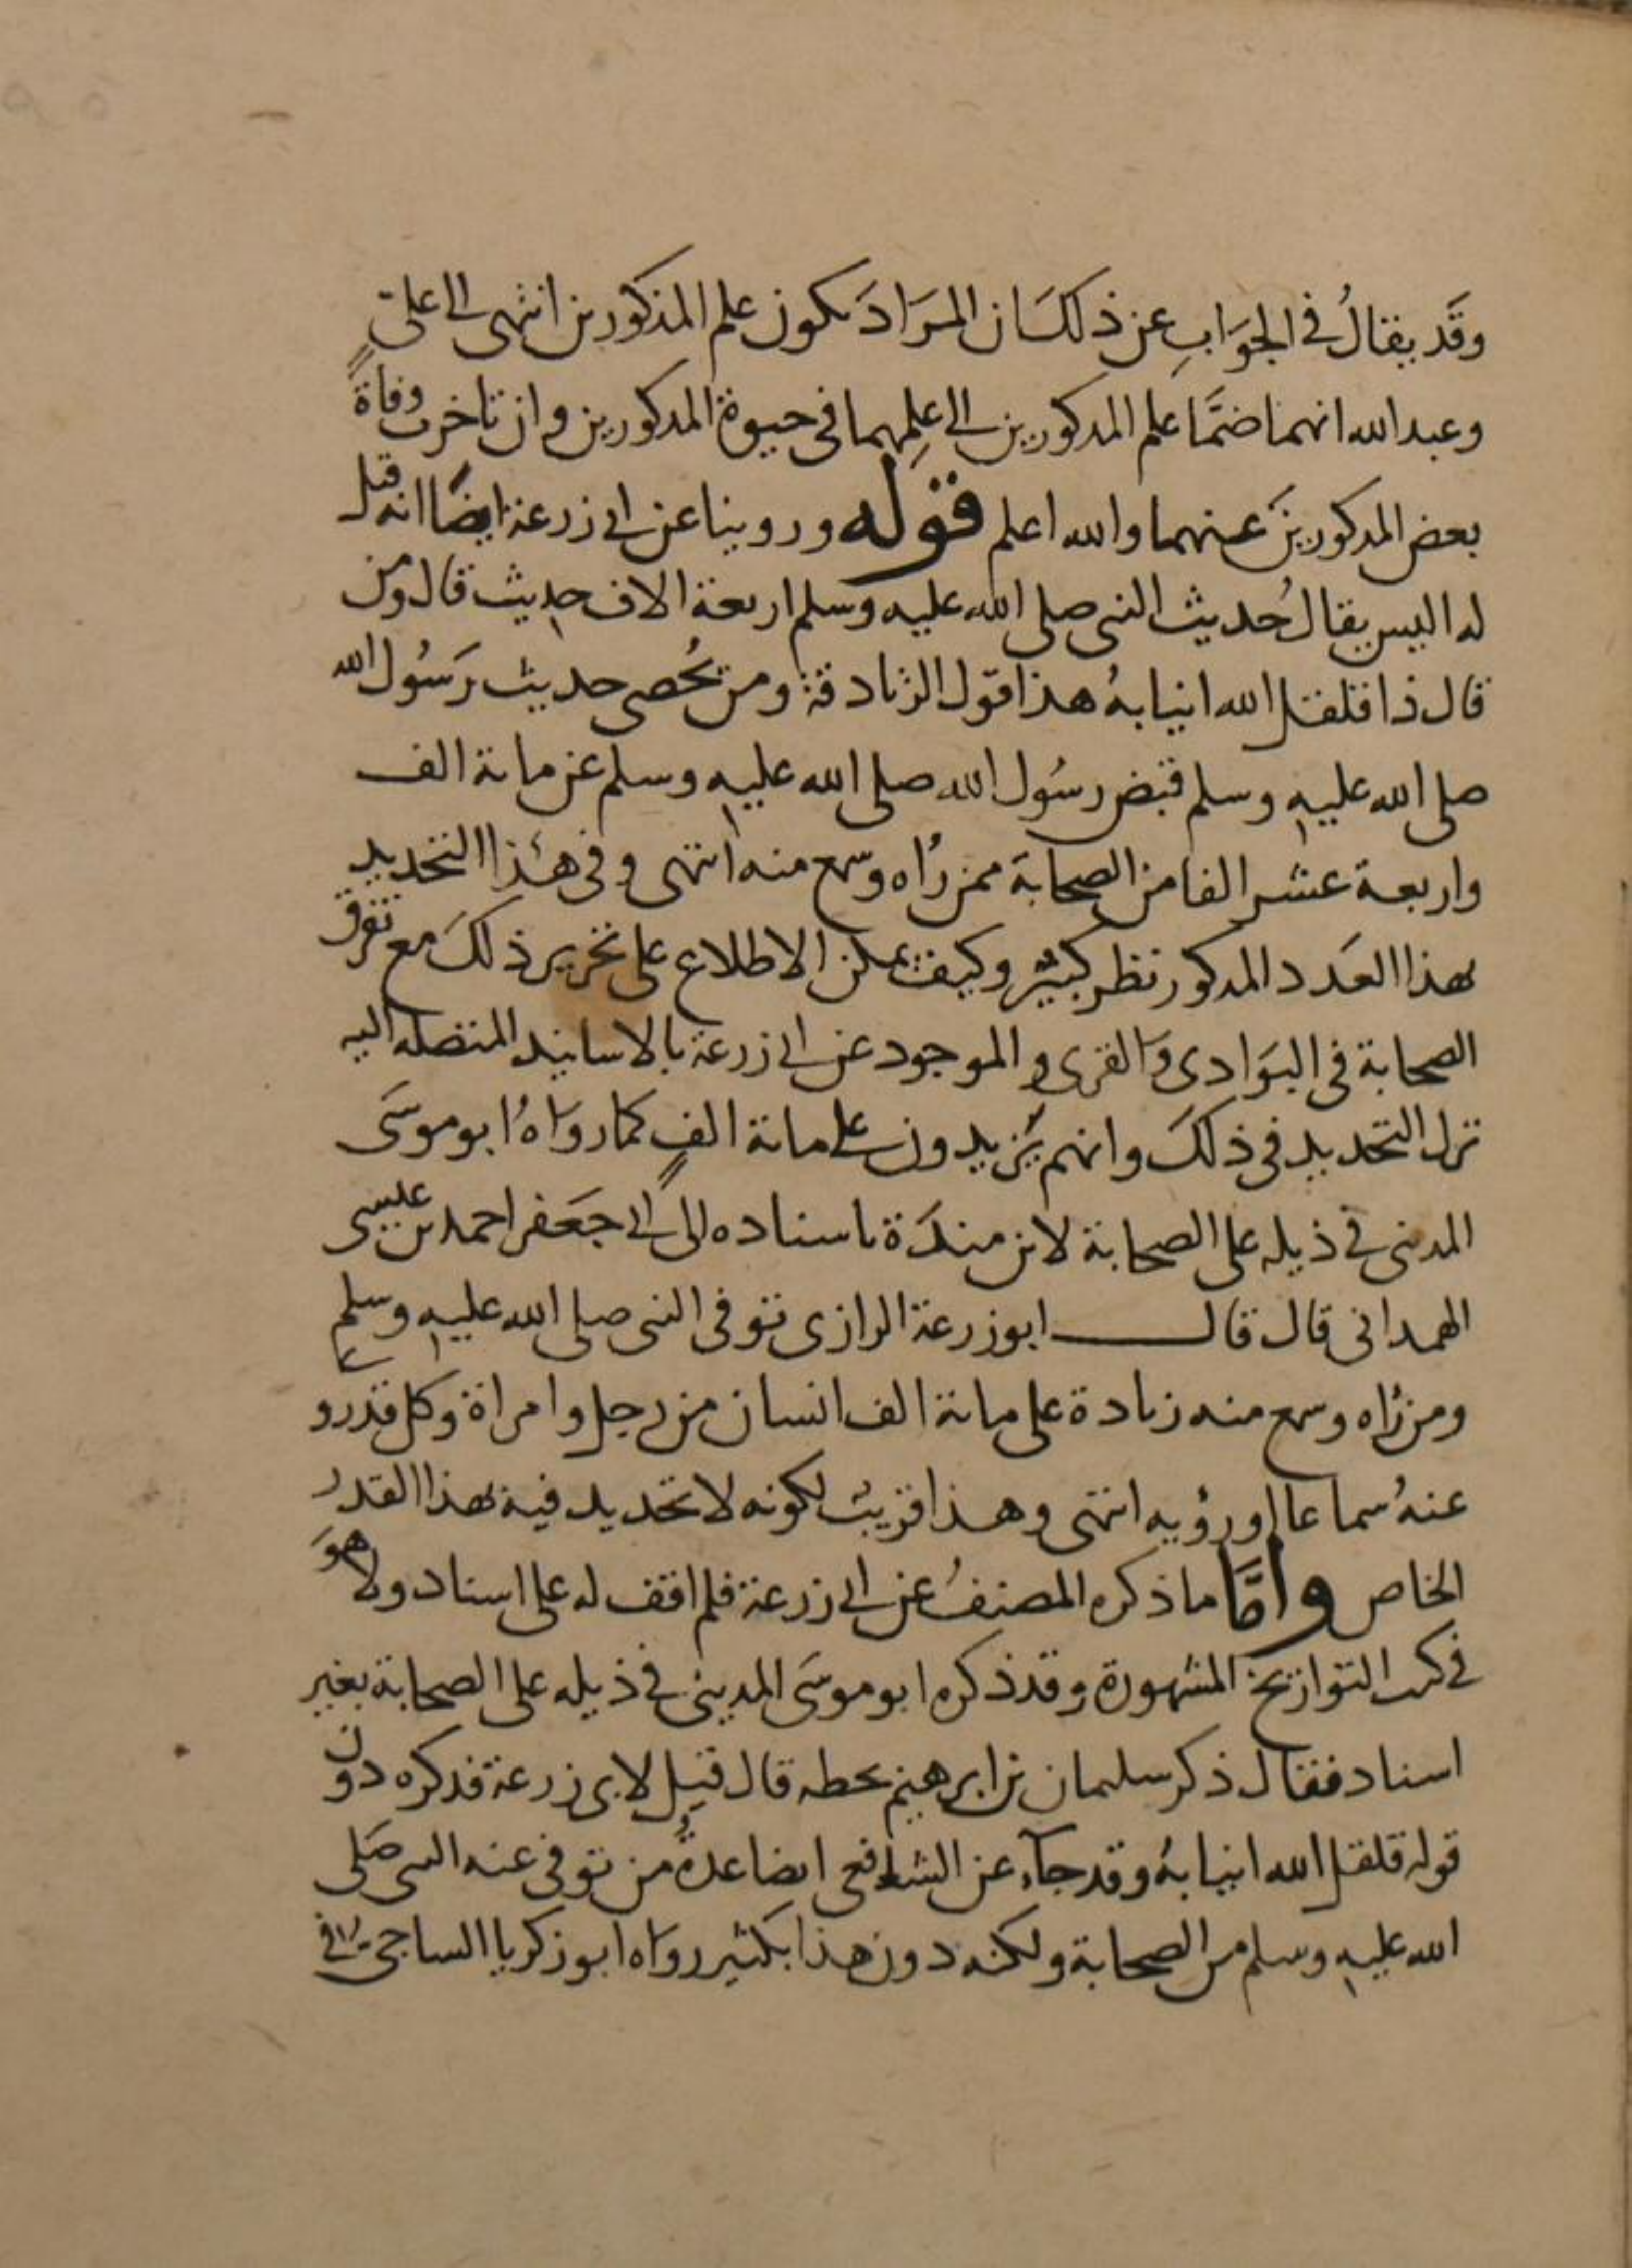 وقَد يقالُ في الجوَابِ عن ذلكَ ان المرَادَ بكون علم المذكورين انتهى الى علىٍّ
وعبد الله انهما ضمَّا علم المذكورين الى علمهما في حيوة المذكورين وان تاخرت وفاةُ
بعض المذكورينَ عنهما والله اعلم قوله وروينا عن ابي زرعة ايضًا انه قيل
له اليس يقال حُديث النبي صلى الله عليه وسلم اربعة الاف حديث قال ومن
قال ذا قلقل الله انيابهُ هذا قول الزنادقة ومن يُحصى حديث رَسُول الله
صلى الله عليه وسلم قبض رسُول الله صلى الله عليه وسلم عن مائة الف
واربعة عشر الفا من الصحابَة ممن رُاه وسمع منه انتهى وفي هذا التحديد
بهذا العَدد المذكور نظر كبيْر وكيف يمكن الاطلاع على تحرير ذلكَ مع تفرق
الصحابة في البوَادى وَالقرى والموجود عن ابي زرعة بالاسانيد المتصله اليه
ترك التحديد في ذلكَ وانهم يَزيدون على مائة الفٍ كما روَاهُ ابو موسَى
المدنى في ذيله على الصحابة لابن مندَة باسناده الى ابي جعَفر احمد بن عيسى
الهمدانى قال قال ابو زرعة الرازى توفى النبى صلى الله عليه وسلم
ومن رُاه وسمع منه زيادة على مائة الف انسان من رجل وامراة وكل قد رو
عنهُ سماعا او رؤيه انتهى وهذا قريبٌ لكونه لا تحديد فيه بهذا القدر
الخاص وامَّا ما ذكره المصنفُ عن ابي زرعة فلم اقف له على اسناد ولا هوَ
في كتب التواريخ المشهورة وقد ذكره ابو موسَى المدينى في ذيله على الصحابة بغير
اسناد فقال ذكر سليمان بن ابرهيم بخطه قال قيل لابى زرعة فذكره دون
قوله قلقل الله انيابهُ وقد جآء عن الشافعى ايضا عدةُ من توفى عنه النبي صَلى
الله عليه وسلم من الصحابة ولكنه دون هذا بكثير روَاه ابو زكريا الساجى في